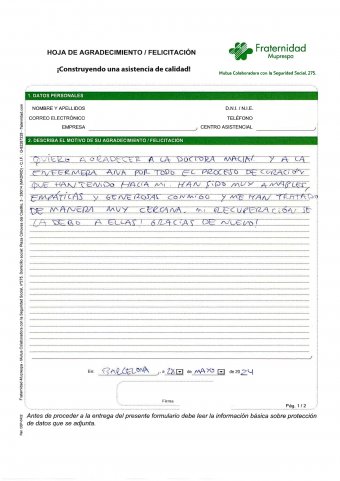 HOJA DE AGRADECIMIENTO / FELICITACIÓN
¡Construyendo una asistencia de calidad!
Fraternidad
Muprespa
Mutua Colaboradora con la Seguridad Social, 275.
1. DATOS PERSONALES
NOMBRE Y APELLIDOS
D.N.I. / N.I.E.
CORREO ELECTRÓNICO
TELÉFONO
EMPRESA
CENTRO ASISTENCIAL
2. DESCRIBA EL MOTIVO DE SU AGRADECIMIENTO / FELICITACIÓN
QUIERO AGRADECER A LA DOCTORA MACIAS Y A LA
ENFERMERA ANA POR TODO EL PROCESO DE CURACIÓN
QUE HAN TENIDO HACIA MI. HAN SIDO MUY AMABLES,
EMPÁTICAS Y GENEROSAS CONMIGO Y ME HAN TRATADO
DE MANERA MUY CERCANA. MI RECUPERACIÓN SE
LA DEBO A ELLAS! GRACIAS DE NUEVO!
En BARCELONA, a 28 de MAYO de 2024
Firma
Pág. 1 / 2
Antes de proceder a la entrega del presente formulario debe leer la información básica sobre protección
de datos que se adjunta.